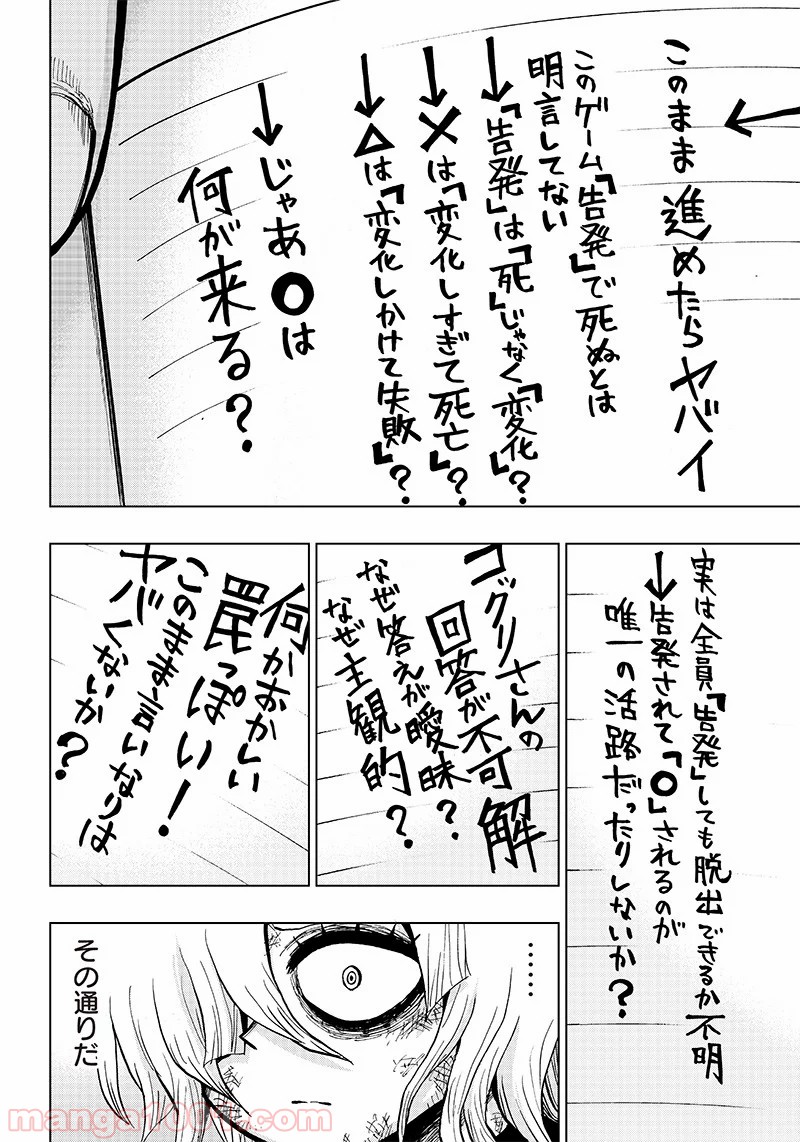 このまま進めたらヤバイ
このゲーム「告発」で死ぬとは
明言してない
↓「告発」は「死」じゃなく「変化」？
↓✕は「変化しすぎて死亡」？
↓△は「変化しかけて失敗」？
↓じゃあ〇は
何が来る？
実は全員「告発」しても脱出できるか不明
↓告発されて「〇」されるのが
唯一の活路だったりしないか？
コックリさんの
回答が不可解
なぜ答えが曖昧？
なぜ主観的？
何かおかしい
罠っぽい！
このまま言いなりは
ヤバくないか？
……
その通りだ
manga1001.com